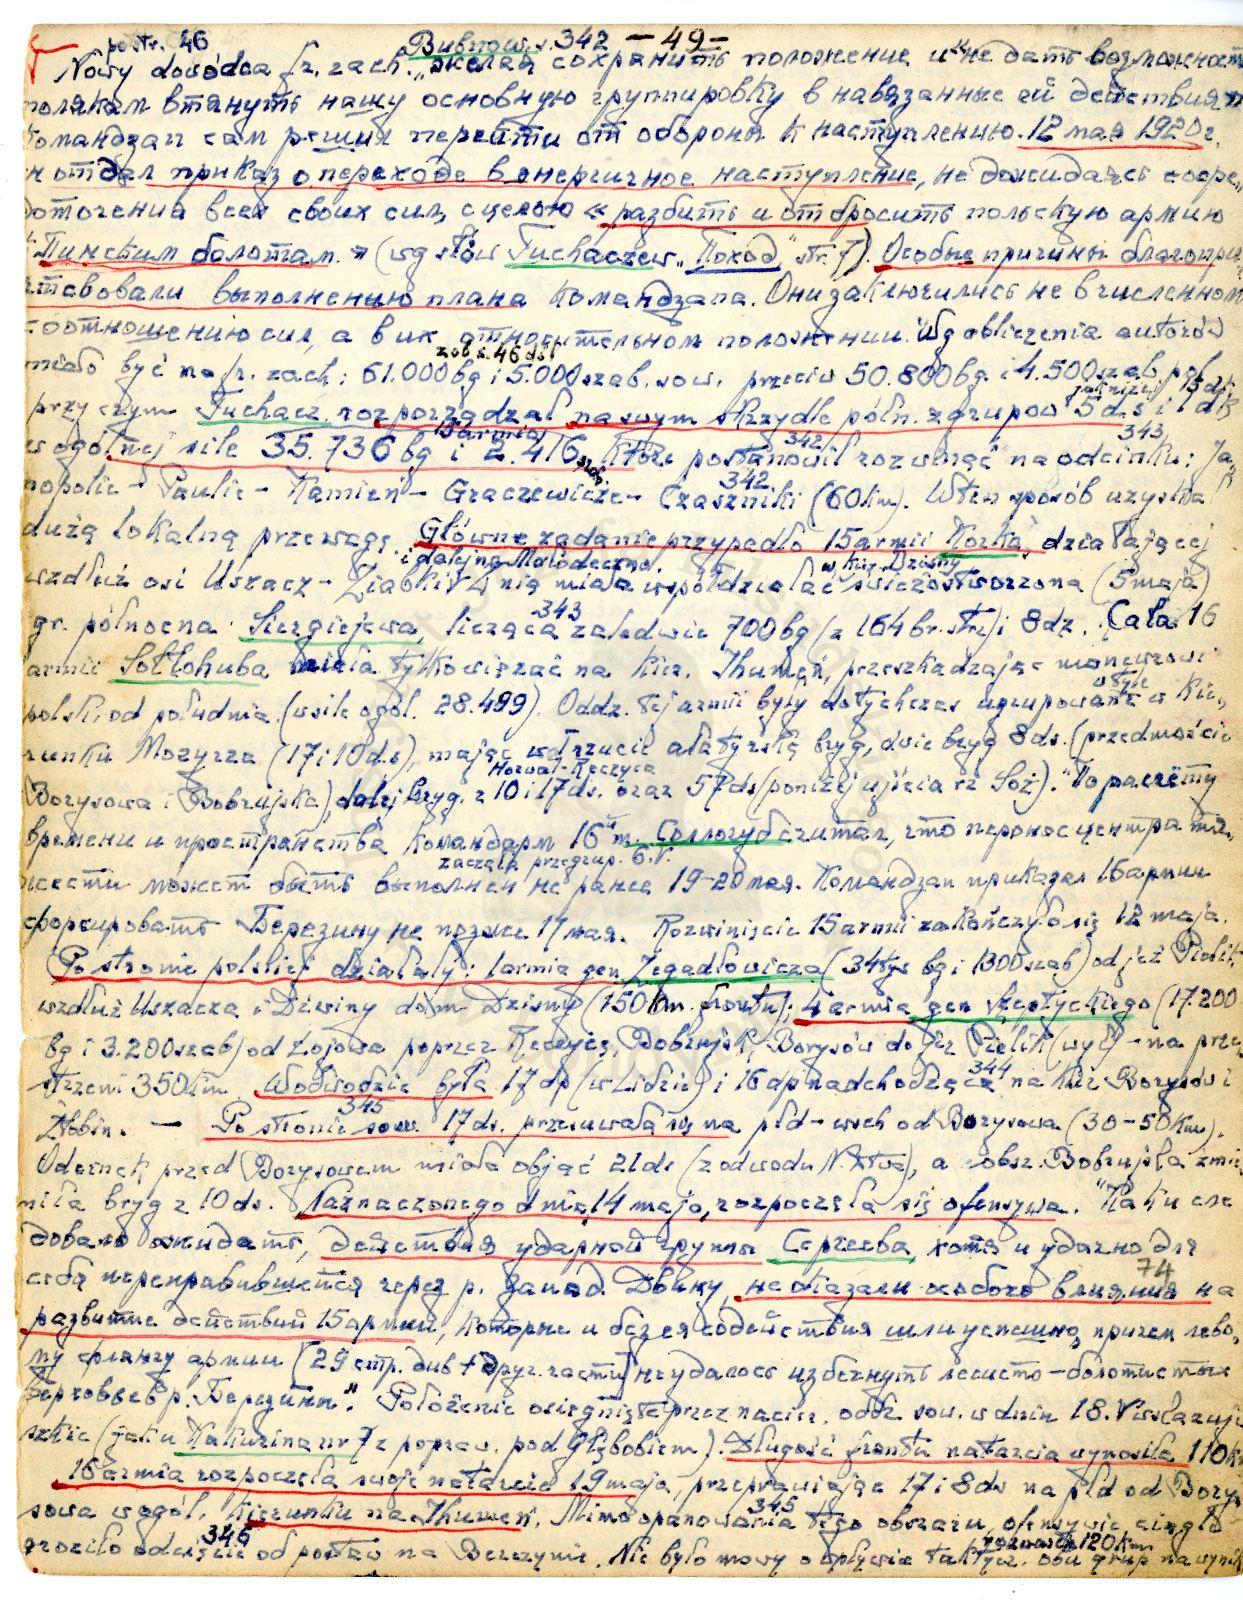 po str. 46 Bubnow. s. 342 - 49 -
Nowy dowódca fr. zach. „желая сохранить положение и не дать возможность
полякам втянуть нашу основную группировку в навязанные ей действия
командзап сам решил перейти от обороны к наступлению. 12 мая 1920 г.
он отдал приказ о переходе в энергичное наступление, не дожидаясь сосре-
доточения всех своих сил, с целью «разбить и отбросить польскую армию
к Пинским болотам.» (wg słów Tuchaczew. „Поход" str. 7). Особые причины благоприят-
ствовали выполнению плана командзапа. Они заключились не в численном
соотношению сил, а в их относительном положении." Wg obliczenia autorów
zob s. 46 dół
miało być na fr. zach: 61.000 bg i 5.000 szab. sow. przeciw 50.800 bg i 4.500 szab pol
przyczym Tuchacz. rozporządzał na swym skrzydle półn. zgrupow 5 d.s i 1 dk
w ogólnej sile 35.736 bg i 2.416 szab, które postanowił rozwinąć na odcinku: Ja-
15 armia 342 343
nopolie - Paulie - Kamień - Graczewicze - Czaszniki (60 km). W ten sposób uzyskał
342
dużą lokalną przewagę. Główne zadanie przypadło 15 armii Korka, działającej
i dalej na Mołodeczno. w kier. Dzisny
wzdłuż osi Uszacz - Ziabki. Z nią miała współdziałać świeżo stworzona (5 maja)
gr. północna Siergiejewa, licząca zaledwie 700 bg (z 164 br. strz) i 8 dz. Cała 16
343
armie Sołłohuba miała tylko wiązać na kier. Ihumeń, przeszkadzając manewrowi
polski. od południa (w sile ogól. 28.499). Oddz. tej armii były dotychczas ugrupowane w kie-
runku Mozyrza (17 i 10 ds), mając
dwie bryg 8 ds. (przedmoście
Horwal-Reczyca
Borysowa i Bobrujska), dalej bryg. z 10 i 17 ds. oraz 57 ds (poniżej ujścia rz Soż). "По расчёту
времени и пространства командарм 16й т. Соллогуб считал, что перенос центра тя-
zaczęła przegrup. 6.V.
жести может быть выполнен не ранее 19-20 мая. Командзап приказал 16 армии
форсировать Березину не позже 17 мая. Rozwinięcie 15 armii zakończyło się 12 maja.
Po stronie polskiej działały: 1 armia gen Zegadłowicza (34 tys bg i 1300 szab) od jez Pielik
wzdłuż Uszacza i Dźwiny do m Dzisny (150 km frontu); 4 armia gen Szeptyckiego (17.200
bg i 3.200 szab) od Łojowa poprzez Reczycę, Bobrujsk, Borysów do jez Pielik (wył) - na prze-
strzeni 350 km. W odwodzie była 17 dp (w Lidzie) i 16 dp nadchodząca na kier Borysów i
344
Żłobin. — Po stronie sow. 17 ds. przesuwała się na płd-wsch od Borysowa (30-50 km).
345
Odcinek przed Borysowem miała objąć 21 ds (z odwodu N. Dtwa), a obsz. Bobrujska zmie-
niła bryg z 10 ds. Naznaczonego dnia, 14 maja, rozpoczęła się ofensywa. "Как и сле-
довало ожидать, действия ударной группы Сергеева, хотя и удачно для
себя переправившейся через р. Запад. Двину, не оказали особого влияния на
74
развитие действий 15 армии, которые и без ея содействия шли успешно, причем лево-
му флангу армии (29 стр. див + друг. части) не удалось избегнуть лесисто-болотистых
верховьев р. Березины." Położenie osiągnięte przez nacier. oddz. sow. w dniu 18.V wskazuje
szkic (jak u Kakurina nr 7 z popraw. pod Głębokiem). Długość frontu natarcia wynosiła 110 km
16 armia rozpoczęła swoje natarcie 19 maja, przeprawiając 17 i 8 ds na płd od Bory-
sowa w ogól. kierunku na Ihumeń. Mimo opanowania tego obszaru, ofensywie ciągle
345
groziło odcięcie od postaw na Berezynie. Nie było mowy o wpływie taktycz. obu grup na wynik
346 rozwarte 120 km